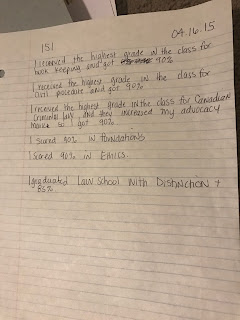 151
04.16.15
I received the highest grade in the class for
book keeping and got 90%
I received the highest grade in the class for
civil procedure and got 90%
I received the highest grade in the class for Canadian
Criminal law, and they increased my advocacy
so I got 90%
I scored 90% in foundations
I scored 90% in Ethics.
I graduated Law School with Distinction +
85%